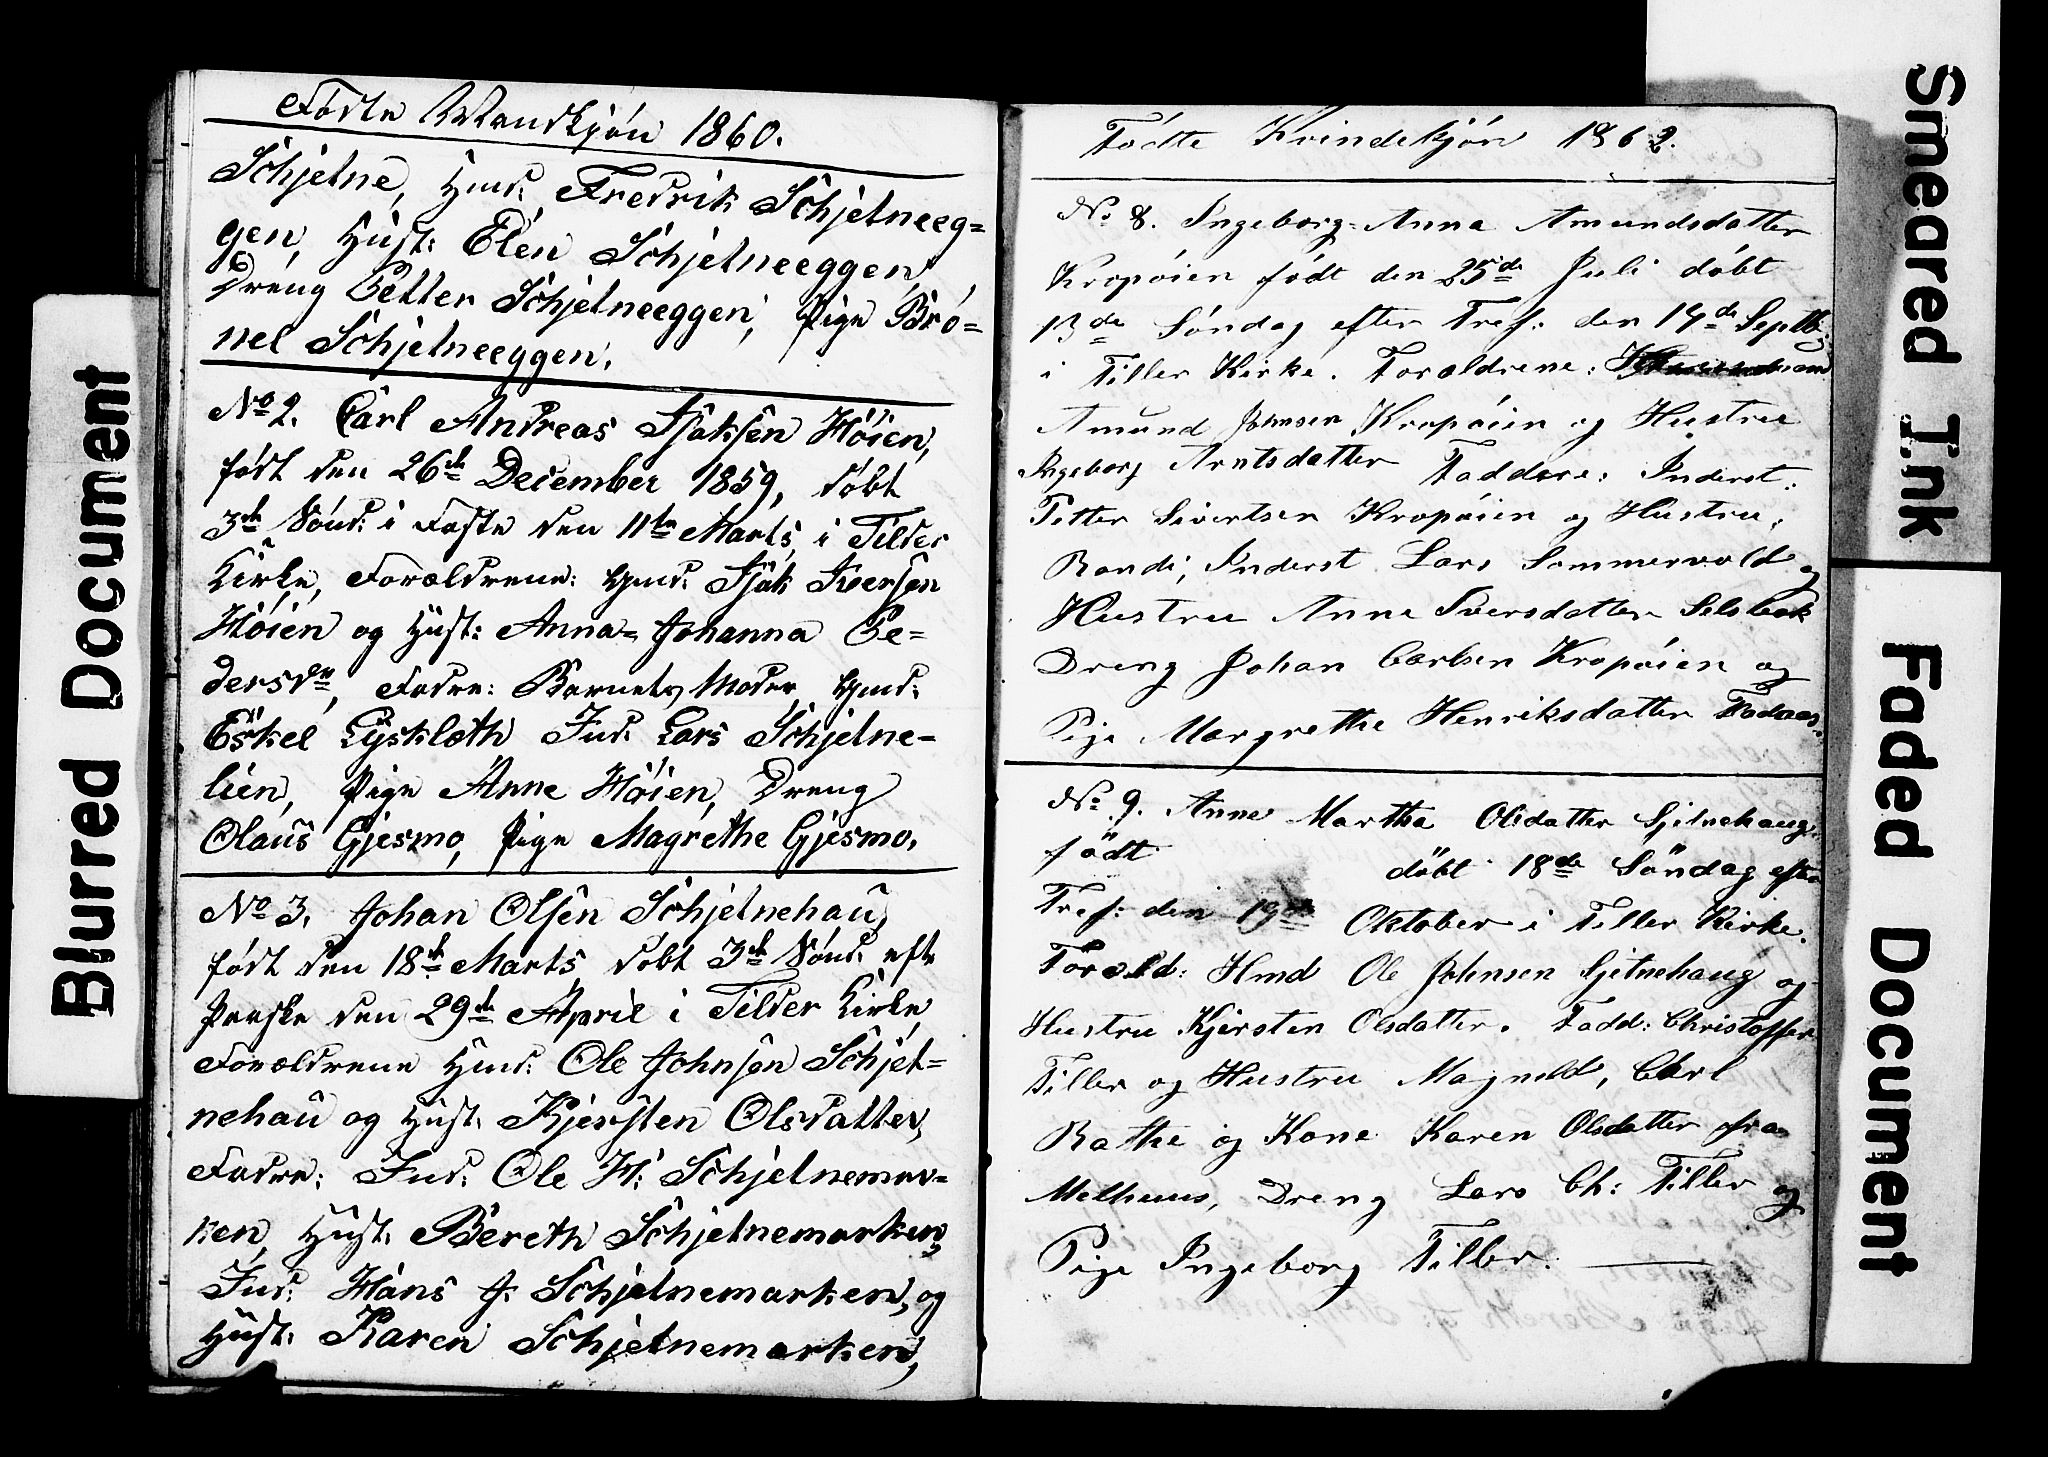 Fødte Mandkjön 1860.
Schjelne, Hmd: Fredrik Schjelneeg-
gen, Hust: Elen Schjelneeggen,
Dreng Petter Schjelneeggen, Pige Brö-
nel Schjelneeggen.
No 2. Carl Andreas Isaksen Höien,
födt den 26de December 1859, döbt
3de Sönd: i Faste den 11te Marts i Tilder
Kirke, Forældrene: Hmd: Isak Iversen
Höien og Hust: Anna-Johanna Pe-
dersdr, Fadre: Barnets Moder, Hmd:
Eskel Lysklæth Ind: Lars Schjelne-
lien, Pige Anne Höien, Dreng
Olaus Gjesmo, Pige Magrethe Gjesmo.
No 3. Johan Olsen Schjelnehau,
födt den 18de Marts döbt 3de Sönd: eft
Paaske den 29de April i Tilder Kirke
Forældrene Hmd: Ole Johnsen Schjel-
nehau og Hust. Kjersten Olsdatter,
Fadre: Ind: Ole H: Schjelnemar-
ken, Hust: Bereth Schjelnemarken,
Ind: Hans J. Schjelnemarken, og
Hust: Karen Schjelnemarken,
Födte Kvindekjön 1862.
No 8. Ingeborg-Anna Amundsdatter
Kropöien födt den 25de Juli döbt
13de Söndag efter Tref: den 14de Septb
i Tiller Kirke. Forældrene:
Amund Johnsen Kropöien og Hustru
Ingeborg Arntsdatter Faddere: Inderst:
Petter Sivertsen Kropöien og Hustru,
Randi, Inderst Lars Sommervold og
Hustru Anne Iversdatter Selsbak
Dreng Johan Carlsen Kropöien og
Pige Margrethe Henriksdatter
No 9. Anne Martha Olsdatter Sjelnehaug
födt döbt 18de Söndag efter
Tref: den 19de Oktober i Tiller Kirke.
Foræld: Hmd Ole Johnsen Sjelnehaug og
Hustru Kjersten Olsdatter. Fadd: Christoffer
Tiller og Hustru Magnild, Carl
Rathe og Kone Karen Olsdatter fra
Melhuus, Dreng Lars Ch: Tiller og
Pige Ingeborg Tiller.
Blurred Document
Smeared Ink
Faded Document